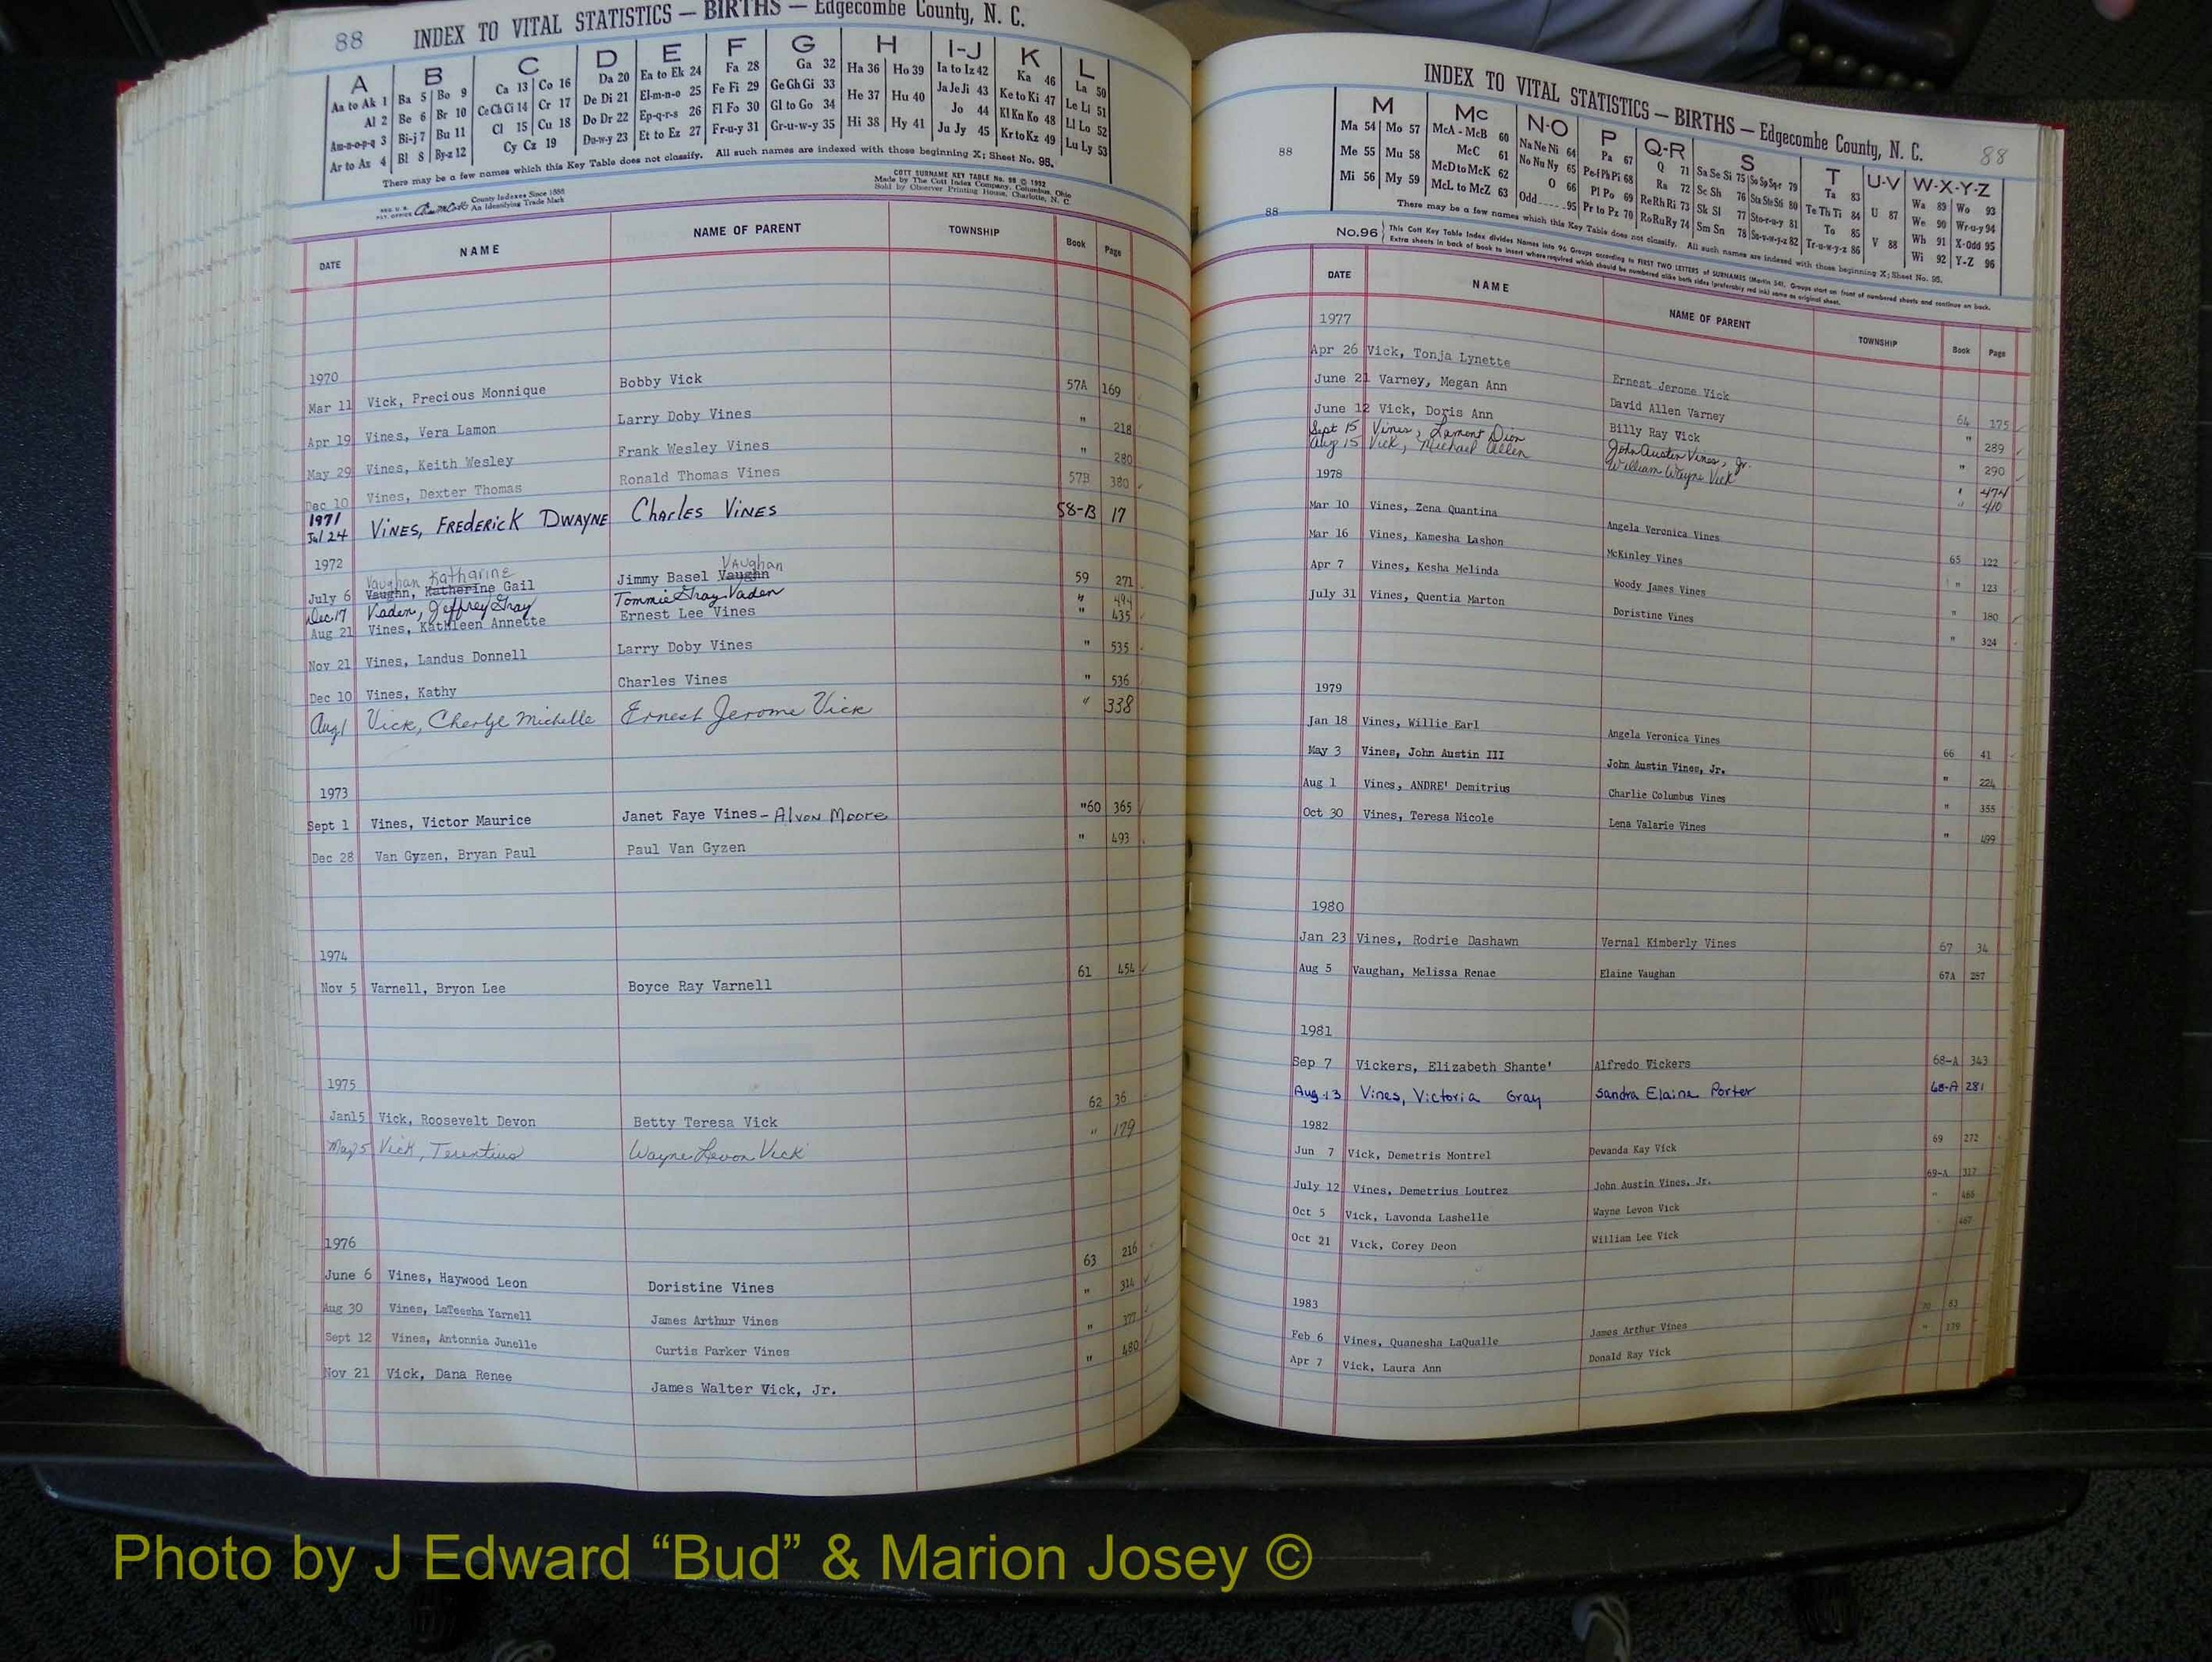 88 INDEX TO VITAL STATISTICS — BIRTHS — Edgecombe County, N. C.
A B C D E F G H I-J K L
Aa to Ak 1 Ba 5 Bo 9 Ca 13 Co 16 Da 20 Ea to Ek 24 Fa 28 Ga 32 Ha 36 Ho 39 Ia to Iz 42 Ka 46 La 50
Al 2 Be 6 Br 10 Ce Ch Ci 14 Cr 17 De Di 21 El-m-n-o 25 Fe Fi 29 Ge Gh Gi 33 He 37 Hu 40 Ja Je Ji 43 Ke to Ki 47 Le Li 51
Am-n-o-p-q 3 Bi-j 7 Bu 11 Cl 15 Cu 18 Do Dr 22 Ep-q-r-s 26 Fl Fo 30 Gl to Go 34 Hi 38 Hy 41 Jo 44 Kl Kn Ko 48 Ll Lo 52
Ar to Az 4 Bl 8 By-z 12 Cy Cz 19 Du-w-y 23 Et to Ez 27 Fr-u-y 31 Gr-u-w-y 35 Ju Jy 45 Kr to Kz 49 Lu Ly 53
There may be a few names which this Key Table does not classify. All such names are indexed with those beginning X; Sheet No. 95.
County Indexes Since 1888
An Identifying Trade Mark
COTT SURNAME KEY TABLE No. 96 © 1952
Made by The Cott Index Company, Columbus, Ohio
Sold by Observer Printing House, Charlotte, N. C.
DATE NAME NAME OF PARENT TOWNSHIP Book Page
1970
Mar 11 Vick, Precious Monnique Bobby Vick 57A 169
Apr 19 Vines, Vera Lamon Larry Doby Vines " 218
May 29 Vines, Keith Wesley Frank Wesley Vines " 280
Dec 10 Vines, Dexter Thomas Ronald Thomas Vines 57B 380
1971
Jul 24 VINES, FREDERICK DWAYNE CHARLES VINES 58-B 17
1972
Vaughan Katharine VAughan
July 6 Vaughn, Katherine Gail Jimmy Basel Vaughn 59 271
Dec 17 Vaden, Jeffrey Gray Tommie Gray Vaden " 494
Aug 21 Vines, Kathleen Annette Ernest Lee Vines " 435
Nov 21 Vines, Landus Donnell Larry Doby Vines " 535
Dec 10 Vines, Kathy Charles Vines " 536
Aug 1 Vick, Cherlye Michelle Ernest Jerome Vick " 338
1973
Sept 1 Vines, Victor Maurice Janet Faye Vines - Alvon Moore "60 365
Dec 28 Van Gyzen, Bryan Paul Paul Van Gyzen " 493
1974
Nov 5 Varnell, Bryon Lee Boyce Ray Varnell 61 454
1975
Jan15 Vick, Roosevelt Devon Betty Teresa Vick 62 36
May 5 Vick, Terentius Wayne Levon Vick " 179
1976
June 6 Vines, Haywood Leon Doristine Vines 63 216
Aug 30 Vines, LaTeesha Yarnell James Arthur Vines " 314
Sept 12 Vines, Antonnia Junelle Curtis Parker Vines " 377
Nov 21 Vick, Dana Renee James Walter Vick, Jr. " 480
INDEX TO VITAL STATISTICS — BIRTHS — Edgecombe County, N. C. 88
88
M Mc N-O P Q-R S T U-V W-X-Y-Z
Ma 54 Mo 57 McA - McB 60 Na Ne Ni 64 Pa 67 Q 71 Sa Se Si 75 So Sp Sq-r 79 Ta 83 U 87 Wa 89 Wo 93
Me 55 Mu 58 McC 61 No Nu Ny 65 Pe-f Ph Pi 68 Ra 72 Sc Sh 76 Sta Ste Sti 80 Te Th Ti 84 V 88 We 90 Wr-u-y 94
Mi 56 My 59 McD to McK 62 O 66 Pl Po 69 Re Rh Ri 73 Sk Sl 77 Sto-r-u-y 81 To 85 Wh 91 X-Odd 95
McL to McZ 63 Odd 95 Pr to Pz 70 Ro Ru Ry 74 Sm Sn 78 Su-v-w-y-z 82 Tr-u-w-y-z 86 Wi 92 Y-Z 96
There may be a few names which this Key Table does not classify. All such names are indexed with those beginning X; Sheet No. 95.
88
No.96 This Cott Key Table Index divides Names into 96 Groups according to FIRST TWO LETTERS of SURNAMES (Martin 54). Groups start on front of numbered sheets and continue on back.
Extra sheets in back of book to insert where required which should be numbered alike both sides (preferably red ink) same as original sheet.
DATE NAME NAME OF PARENT TOWNSHIP Book Page
1977
Apr 26 Vick, Tonja Lynette Ernest Jerome Vick 64 175
June 21 Varney, Megan Ann David Allen Varney " 289
June 12 Vick, Doris Ann Billy Ray Vick " 290
Sept 15 Vines, Lamont Dion John Austin Vines, Jr. " 474
Aug 15 Vick, Michael Allen William Wayne Vick " 410
1978
Mar 10 Vines, Zena Quantina Angela Veronica Vines 65 122
Mar 16 Vines, Kamesha Lashon McKinley Vines " 123
Apr 7 Vines, Kesha Melinda Woody James Vines " 180
July 31 Vines, Quentia Marton Doristine Vines " 324
1979
Jan 18 Vines, Willie Earl Angela Veronica Vines 66 41
May 3 Vines, John Austin III John Austin Vines, Jr. " 224
Aug 1 Vines, ANDRE' Demitrius Charlie Columbus Vines " 355
Oct 30 Vines, Teresa Nicole Lena Valarie Vines " 499
1980
Jan 23 Vines, Rodrie Dashawn Vernal Kimberly Vines 67 34
Aug 5 Vaughan, Melissa Renae Elaine Vaughan 67A 287
1981
Sep 7 Vickers, Elizabeth Shante' Alfredo Vickers 68-A 343
Aug 13 Vines, Victoria Gray Sandra Elaine Porter 68-A 281
1982
Jun 7 Vick, Demetris Montrel Dewanda Kay Vick 69 272
July 12 Vines, Demetrius Loutrez John Austin Vines, Jr. 69-A 317
Oct 5 Vick, Lavonda Lashelle Wayne Levon Vick " 466
Oct 21 Vick, Corey Deon William Lee Vick 467
1983
Feb 6 Vines, Quanesha LaQualle James Arthur Vines 70 63
Apr 7 Vick, Laura Ann Donald Ray Vick "
Photo by J Edward “Bud” & Marion Josey ©